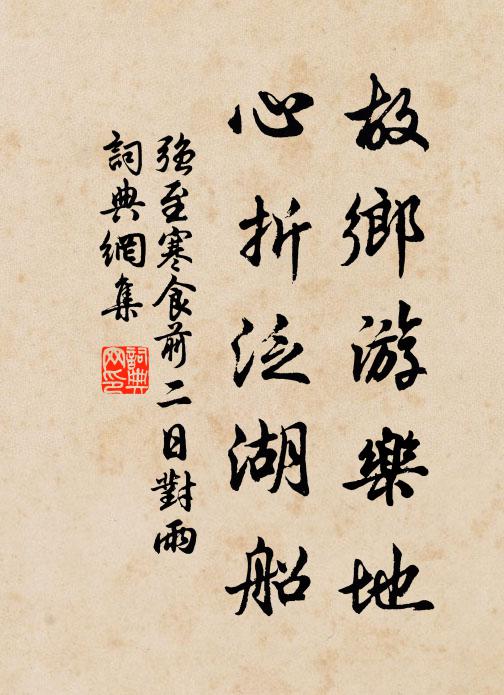 故鄉游樂地
心折泛湖船
強至寒食前二日對雨
詞典網集
詞典网印